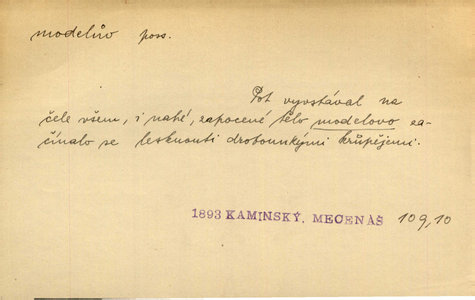 modelův poss.
Pot vyvstával na
čele všem, i nahé, zapocené tělo modelovo za-
čínalo se lesknouti drobounkými krůpějemi.
1893 KAMINSKÝ, MECENÁŠ 109,10